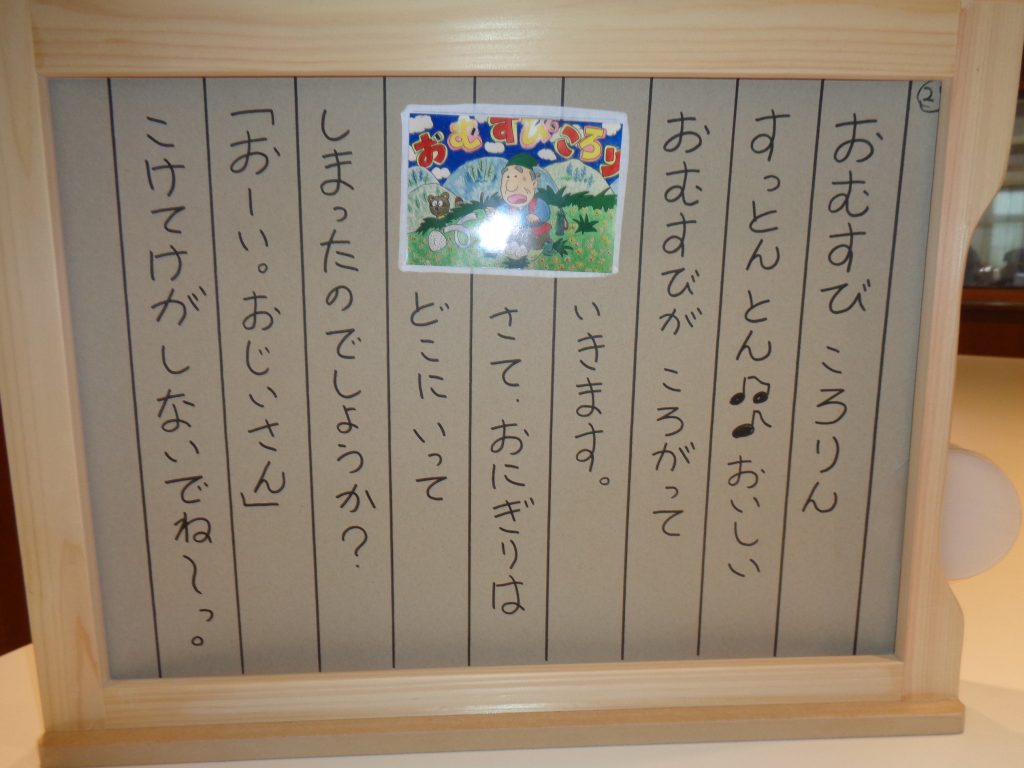 ②
おむすび ころりん
すっとん とん♫♪ おいしい
おむすびが ころがって
いきます。
さて、おにぎりは
どこに いって
しまったのでしょうか？
「おーい。おじいさん」
こけてけが しないでね〜っ。
おむすびころり